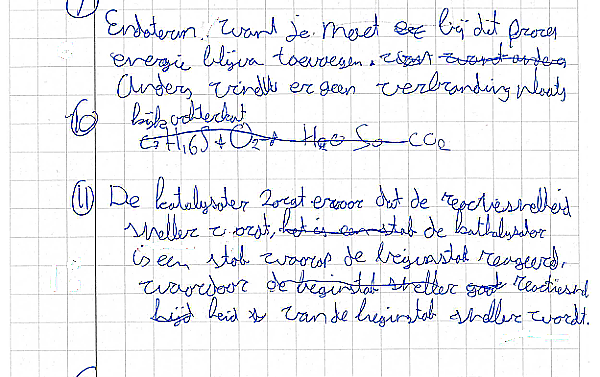 Endoterm. want je moet bij dit proces
energie blijven toevoegen. want anders
Anders vindt er geen verbranding plaats
10 kijk achterkant
C7H16S + O2 → H2O SO CO2
11 De katalysator zorgt ervoor dat de reactiesnelheid
sneller wordt, het is een stof de kathalysator
is een stof waarop de beginstof reageerd,
waardoor de beginstof sneller gaat reactiesnel
heid van de beginstof sneller wordt.